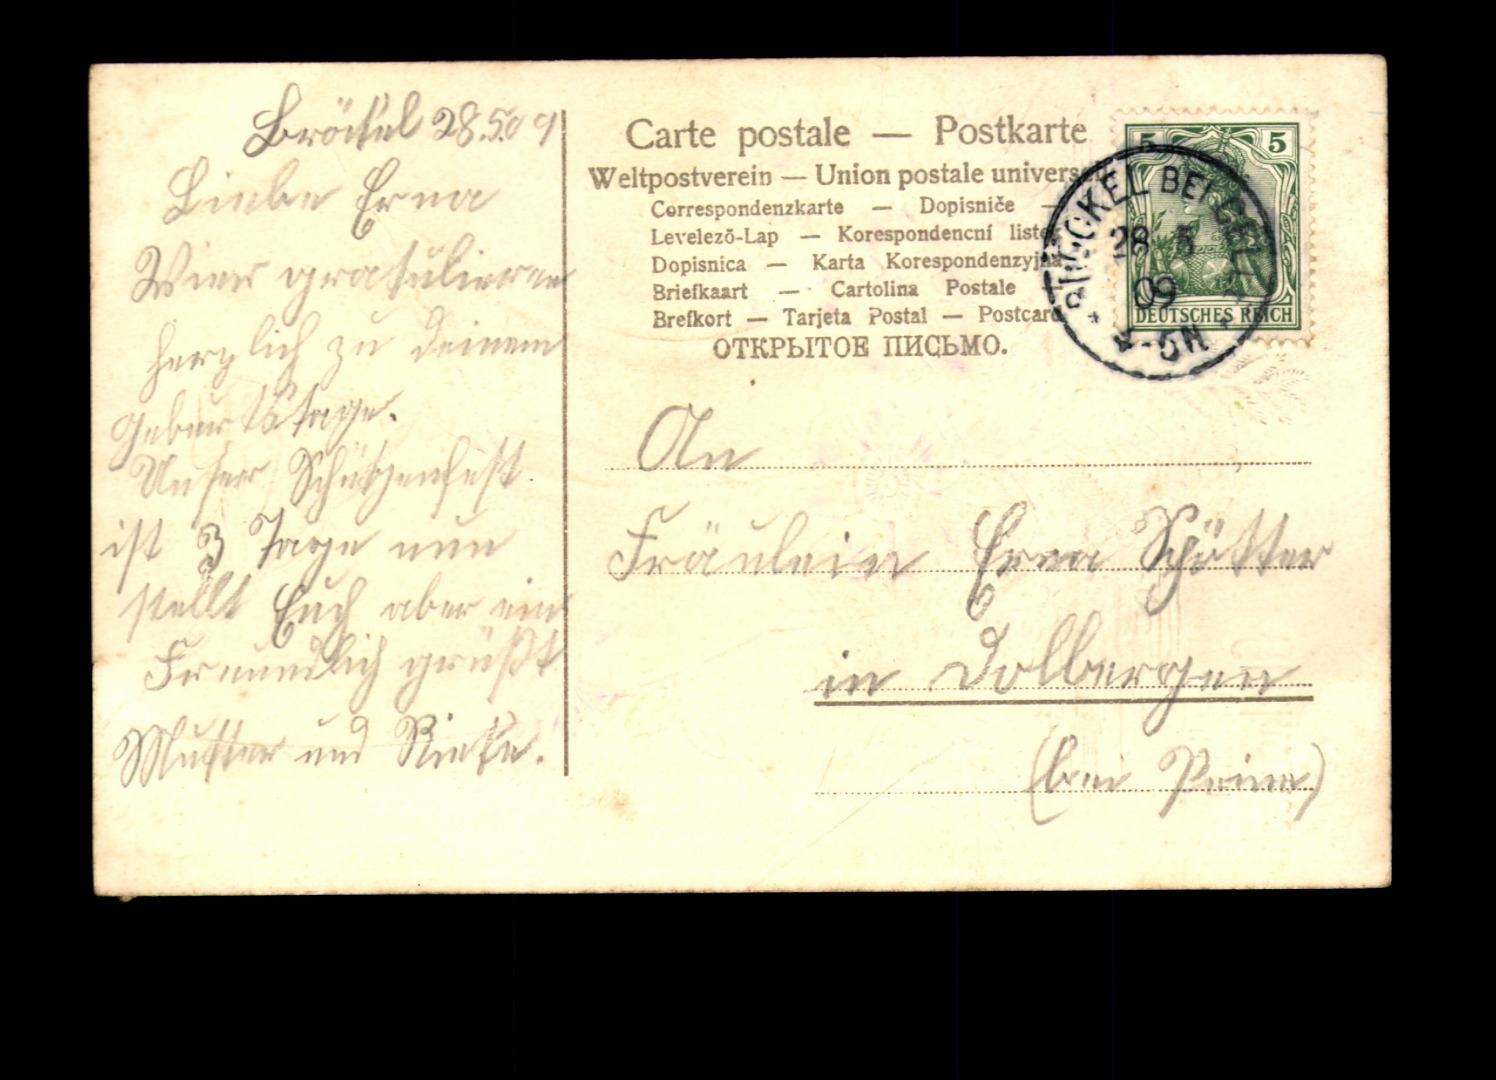 Bröckel 28.5.09
Liebe Erna
Wier gratulieren
herzlich zu deinem
Geburtstage.
Unser Schützenfest
ist 3 Tage nun
stellt Euch aber ein
Freundlich grüßt
Mutter und
Carte postale — Postkarte
Weltpostverein — Union postale univers
Correspondenzkarte — Dopisniče —
Levelezö-Lap — Korespondencní listek
Dopisnica — Karta Korespondenzyjna
Briefkaart — Cartolina Postale
Brefkort — Tarjeta Postal — Postcard
ОТКРЫТОЕ ПИСЬМО.
5 5
DEUTSCHES REICH
BRÖCKEL BEI CELLE
28 5
09
5-6N
An
Fräulein Erna Schötter
in Dolbergen
(bei Peine)